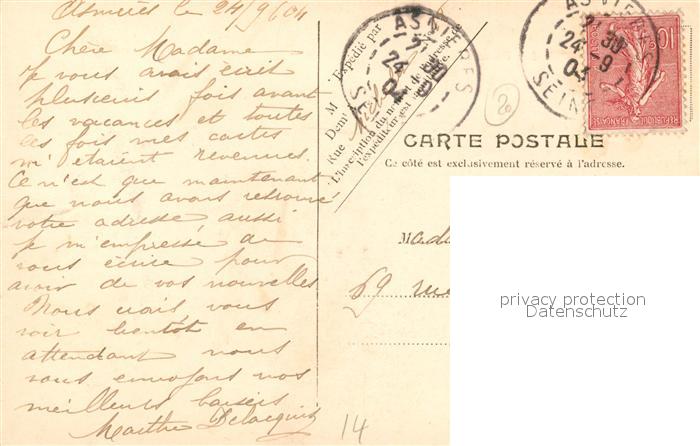 Asnières le 24/9 04
Chère Madame
Je vous avais écrit
plusieurs fois avant
les vacances et toutes
les fois mes cartes
m'étaient revenues.
Ce n'est que maintenant
que nous avons retrouvé
votre adresse, aussi
je m'empresse de
vous écrire pour
avoir de vos nouvelles
Nous
vous
voir bientôt en
attendant nous
vous envoyons nos
meilleurs baisers
Marthe
M Expédié par
Dem
Rue
L'inscription du nom et de l'adresse de
l'expéditeur est
ASNIÈRES
24 9
04
SEINE
20
ASNIÈRES
24 - 9
SEINE
10
POSTES
REPUBLIQUE FRANÇAISE
CARTE POSTALE
Ce côté est exclusivement réservé à l'adresse.
Mada
69 rue
privacy protection
Datenschutz
14